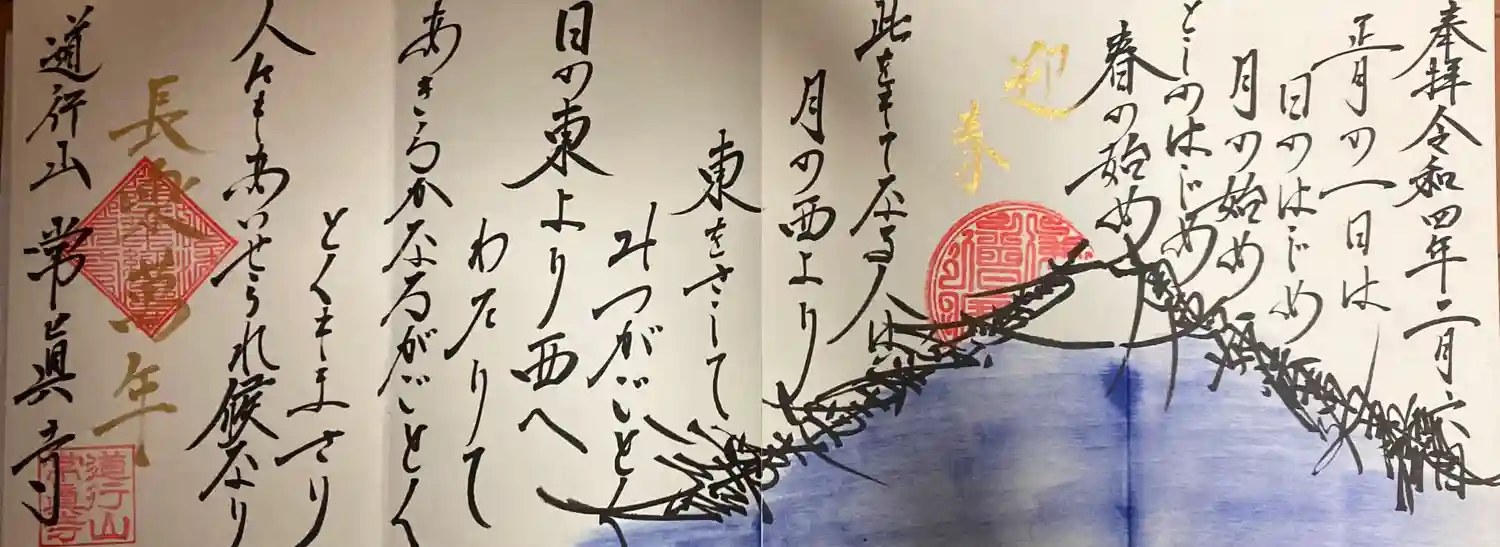 奉拝令和四年二月六日
正月の一日は
日のはじめ
月の始め
としのはじめ
春の始め
迎
春
此をもてなす人は
月の西より
東をさして
みつがごとく
日の東より西へ
わたりて
あきらかなるがごとく
とくもまさり
人にもあいせられ候なり
長楽萬年
道行山 常眞寺
道行山
常眞寺